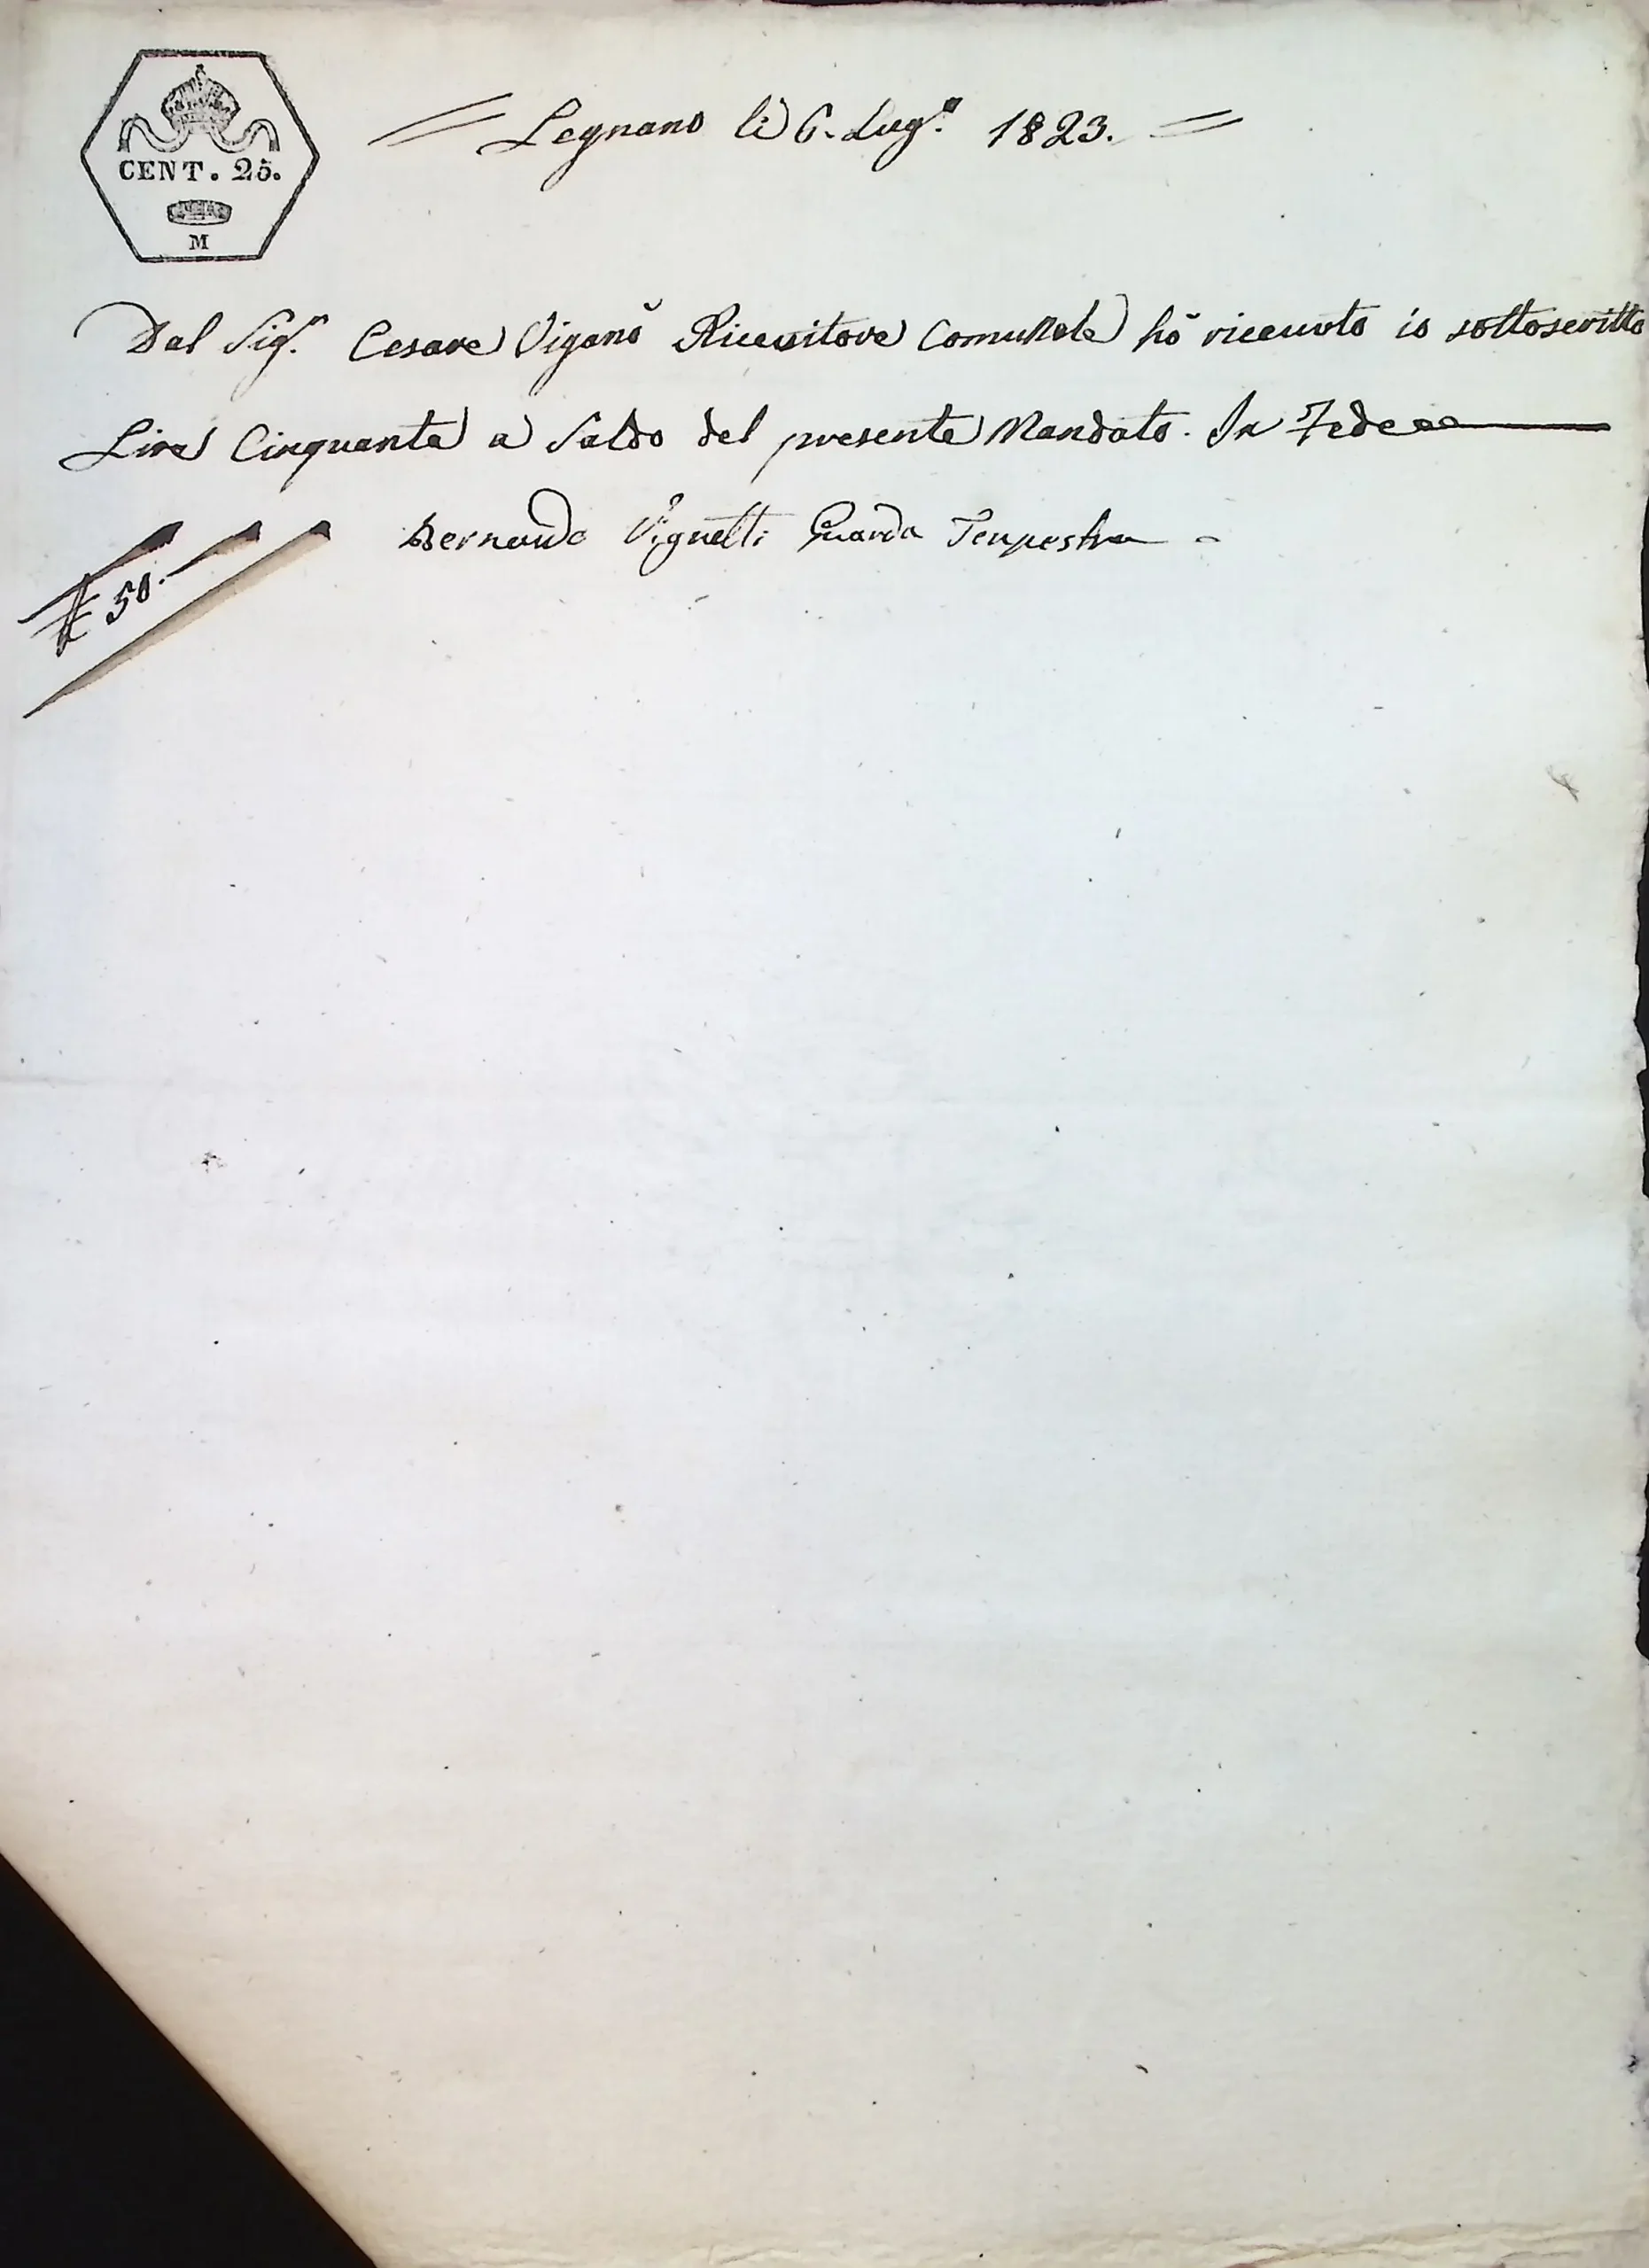 CENT. 25.
M
Legnano li 6. Lug.º 1823.
Dal Sig.r Cesare Viganò Ricevitore Comunale hò ricevuto io sottoscritto
Lire Cinquanta a Saldo del presente Mandato. In Fede
Bernardo Vignati Guarda
£ 50.